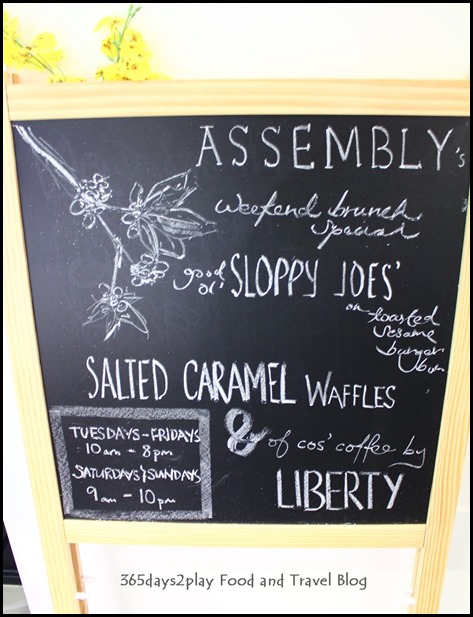 ASSEMBLY's
Weekend brunch
special
good
ol' SLOPPY JOES'
on toasted
sesame
burger
bun
SALTED CARAMEL WAFFLES
& of cos' coffee by
LIBERTY
TUESDAYS - FRIDAYS
10am - 8pm
SATURDAYS & SUNDAYS
9am - 10pm
365days2play Food and Travel Blog